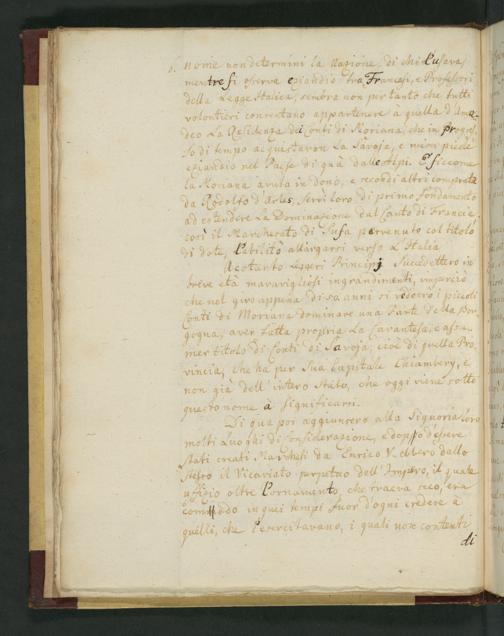 6. nome non determini la Nazione, di chi l'usava,
mentre si osserva eziandio tra Francesi, e Professori
della Legge Salica, sembra non per tanto che tutti
volontieri consentano appartenere à quella d'Ama-
deo La Residenza dei Conti di Moriana, che in progres-
so di tempo acquistaron La Savoja, e miser piede
eziandio nel Paese di quà dalle Alpi. E siccome
la Moriana avuta in dono, e secondo altri comprata
da Rodolfo d'Arles, servì loro di primo fondamento
ad estendere La Dominazione dal Canto di Francia,
così il Marchesato di Susa pervenuto col titolo
di dote, l'abilitò allargarsi verso L'Italia
A cotanto Leggeri Principj succedettero in
breve età maravigliosi ingrandimenti, imperciò
che nel giro appena di 50 anni si vedero i piccoli
Conti di Moriana dominare una Parte della Bor-
gogna, aver fatta propria La Tarantesia, e assu-
mer titolo di Conti di Savoja, cioè di quella Pro-
vincia, che ha per sua Capitale Chiambery, e
non già dell'intero Stato, che oggi viene sotto
questo nome à significarsi.
Di quà poi aggiunsero alla Signoria loro
molti Luoghi di considerazione, e doppo d'essere
stati creati Marchesi da Enrico V. ebbero dallo
stesso il Vicariato perpetuo dell'Impero, il quale
uffizio oltre l'ornamento, che traeva seco, era
commodo in quei tempi fuor d'ogni credere à
quelli, che l'esercitavano, i quali non contenti
di